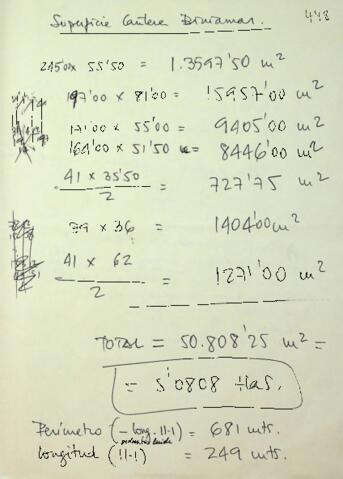 Superficie Cantera Biniamar. 448
245'00 x 55'50 = 1.3597'50 m²
197'00 x 81'00 = 15957'00 m²
171'00 x 55'00 = 9405'00 m²
164'00 x 51'50 = 8446'00 m²
41 x 35'50 / 2 = 727'75 m²
39 x 36 = 1404'00 m²
41 x 62 / 2 = 1271'00 m²
TOTAL = 50.808'25 m² =
= 5'0808 Has.
Perímetro (- long. 11-1) = 681 mts.
longitud (11-1) = 249 mts.